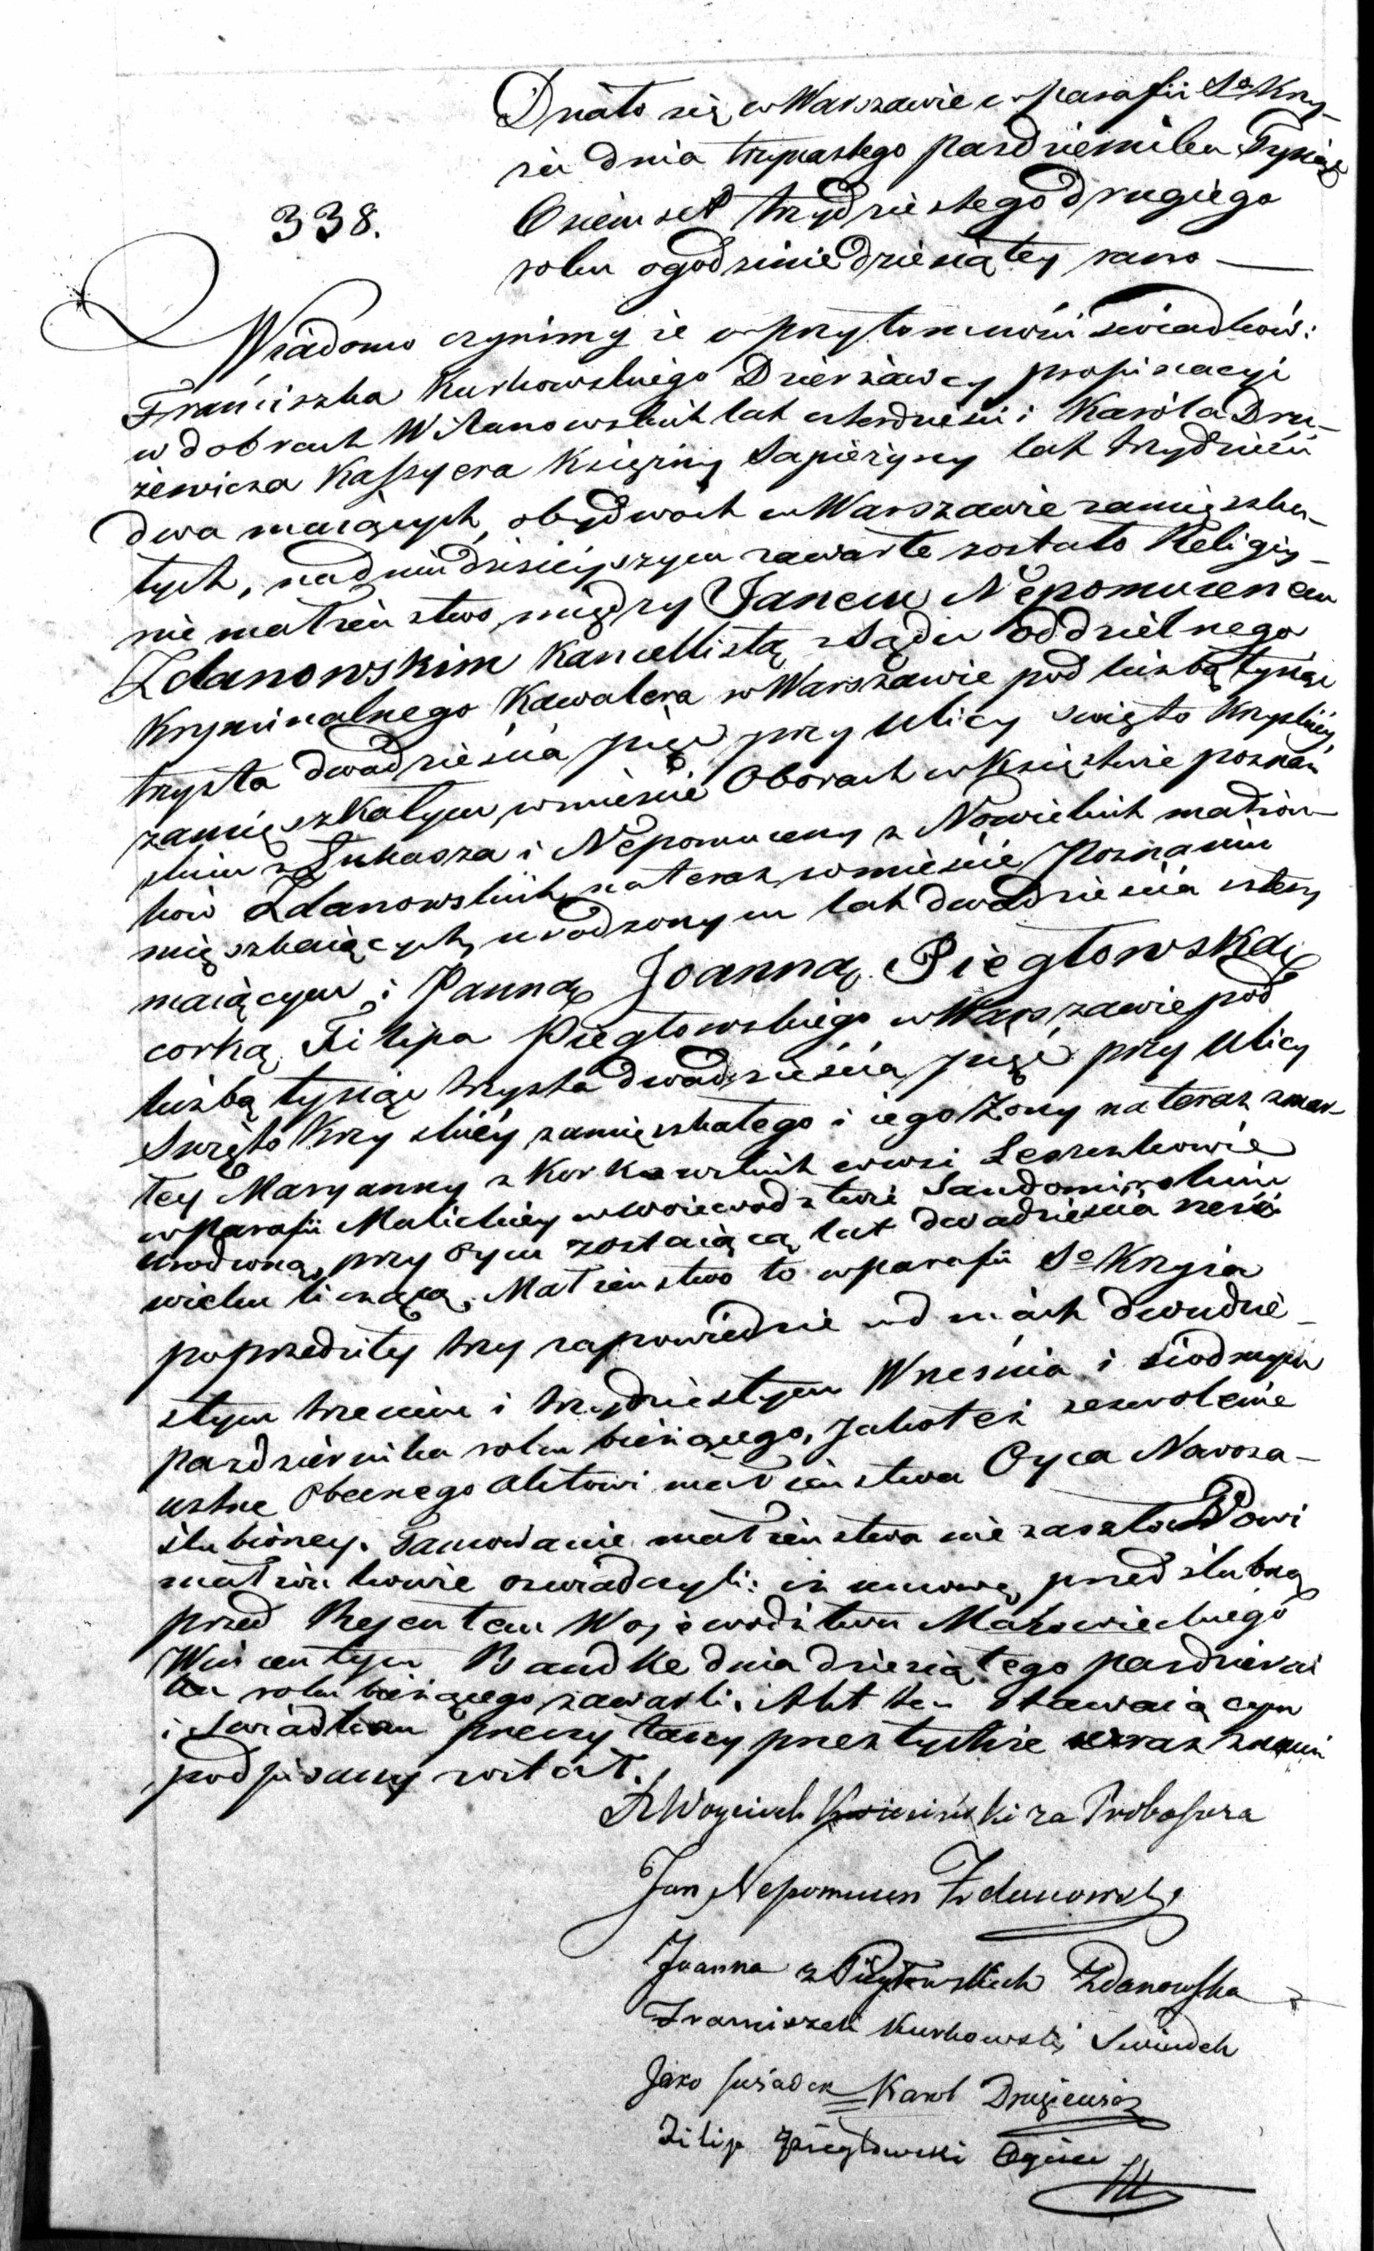 Działo się w Warszawie w parafii Sº Krzy-
ża dnia trzynastego pazdziernika Tysiąc
338.
Ośiemset trzydziestego drugiego
roku o godzinie dziesiątey rano —
Wiadomo czynimy że w przytomności świadków:
Franciszka Kurkowskiego Dzierżawcy propinacyi
w dobrach Wilanowskich lat czterdzieści i Karola Dru-
żewicza Kassyera Xiężny Sapieżyny lat trzydzieści
dwa maiących, obydwóch w Warszawie zamięszka-
łych, na dniu dzisieyszym zawarte zostało Religiy-
nie małżeństwo między Janem Nepomucenem
Zdanowskim Kancellistą z Sądu oddzielnego
Kryminalnego Kawalera w Warszawie pod liczbą tysiąc
trzysta dwadzieścia pięć przy Ulicy święto Krzyskiey
zamięszkałym w mieście Oborach w Xięstwie poznań
skim z Łukasza i Nepomuceny z Nowickich małżon-
ków Zdanowskich, na teraz w mieście Poznaniu
mięszkaiących, urodzonym lat dwadzieścia cztery
maiącym i Panną Joanną Piegłowską
corką Filipa Piegłowskiego w Warszawie pod
liczbą tysiąc trzysta dwadzieścia pięć przy Ulicy
Święto Krzyskiey zamięszkałego i iego Żony na teraz zmar-
łey Maryanny z Korkowskich w wsi Leszczkowie
w Parafii Malickiey w Woiewództwie Sandomirskim
urodzoną, przy Oycu zostaiącą lat dwadzieścia sześć
wieku liczącą. Małżeństwo to w parafii Sº Krzyża
poprzedziły trzy zapowiedzie w dniach dwudzie-
stym trzecim i trzydziestym Września i siodmym
pazdziernika roku bieżącego, jakoteż zezwolenie
ustne obecnego Aktowi małżeństwa Oyca Nowoza-
ślubioney. Tamowanie małżeństwa nie zaszło. Nowi
małżonkowie oswiadczyli: iż umowę przed ślubną
przed Rejentem Województwa Mazowieckiego
Wincentym Bandke dnia dziesiątego pazdzierni
ka roku bieżącego zawarli. Akt ten stawaiącym
i świadkom przeczytany przez tychże wraz z nami
podpisany został.
X Woyciech Kwiciński za Proboszcza
Jan Nepomucen Zdanowski
Joanna z Piegłowskich Zdanowska
Franciszek Kurkowski Swiadek
Jako swiadek Karol Drużewicz
Filip Piegłowski Oyciec